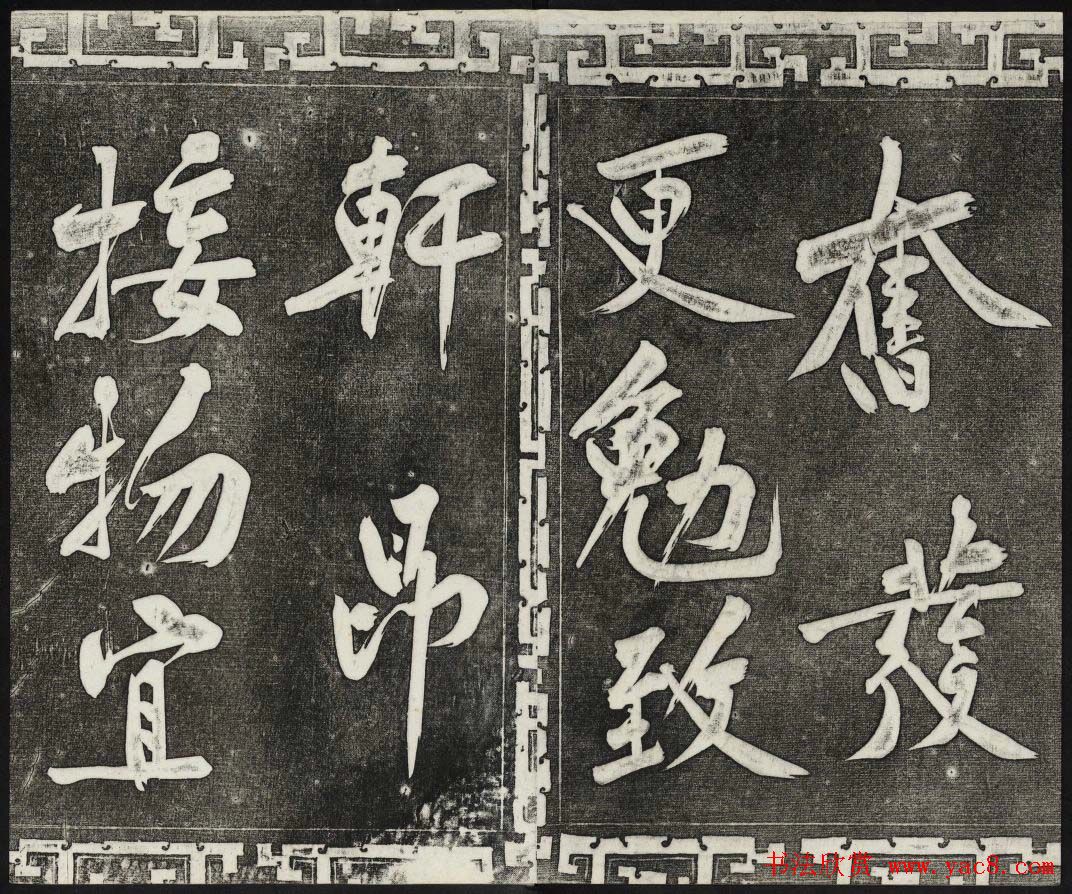 奮發
更勉致
軒昂
接物宜
书法欣赏 www.yac8.com